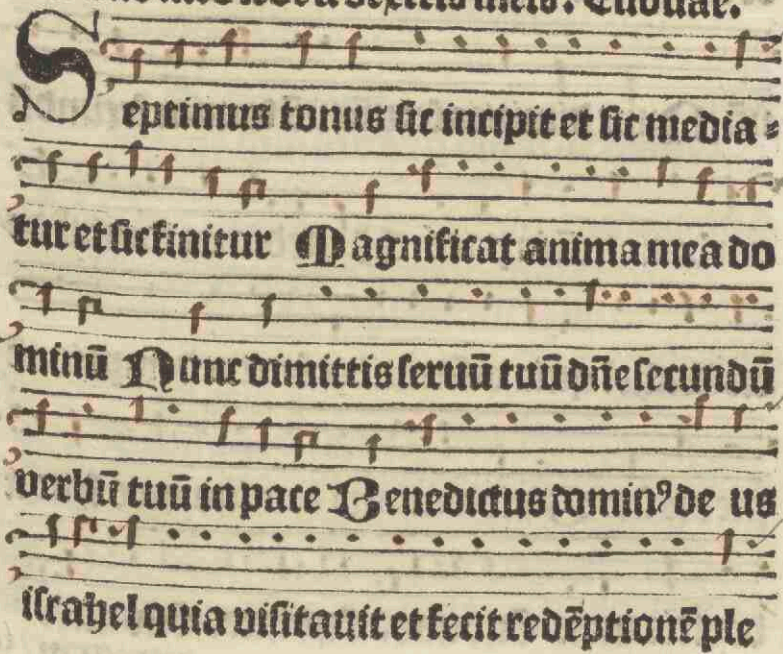 Septimus tonus sic incipit et sic media⸗
tur et sic finitur Magnificat anima mea do
minū Nunc dimittis seruū tuū dn̄e secundū
verbū tuū in pace Benedictus dominꝰ de us
israhel quia visitauit et fecit redēptionē ple